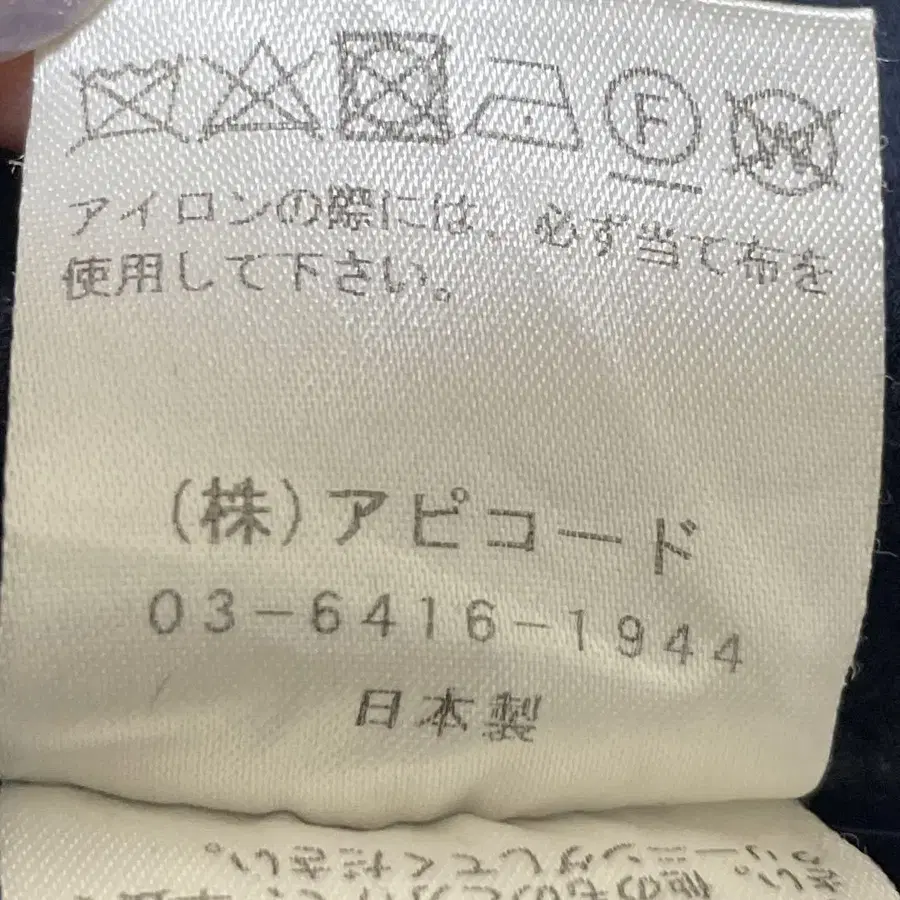 F
W
アイロンの際には、必ず当て布を
使用して下さい。
(株)アピコード
03-6416-1944
日本製